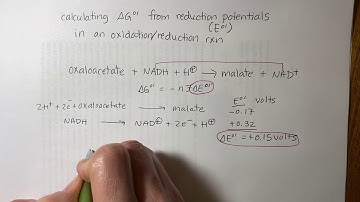 calculating ΔG°' from reduction potentials
(E°')
in an oxidation/reduction rxn
oxaloacetate + NADH + H⊕ → malate + NAD⊕
ΔG°' = -nƑΔE°'
E°' volts
2H⁺ + 2e⁻ + oxaloacetate → malate -0.17
NADH → NAD⊕ + 2e⁻ + H⊕ +0.32
ΔE°' = +0.15 volts